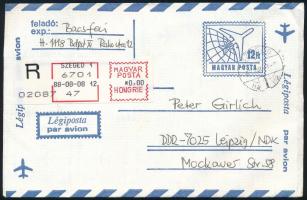 feladó:
exp.:
Bacsfai
H. 1118 Bpest
avion
Légiposta
R
SZEGED 1
6701
88-08-08 12
02087 47
MAGYAR
POSTA
*0.00
HONGRIE
12Ft
MAGYAR POSTA
Légiposta
par avion
Peter Girlich
DDR-7025 Leipzig/NDK
Mockauer Str. 58
Légiposta
par avion